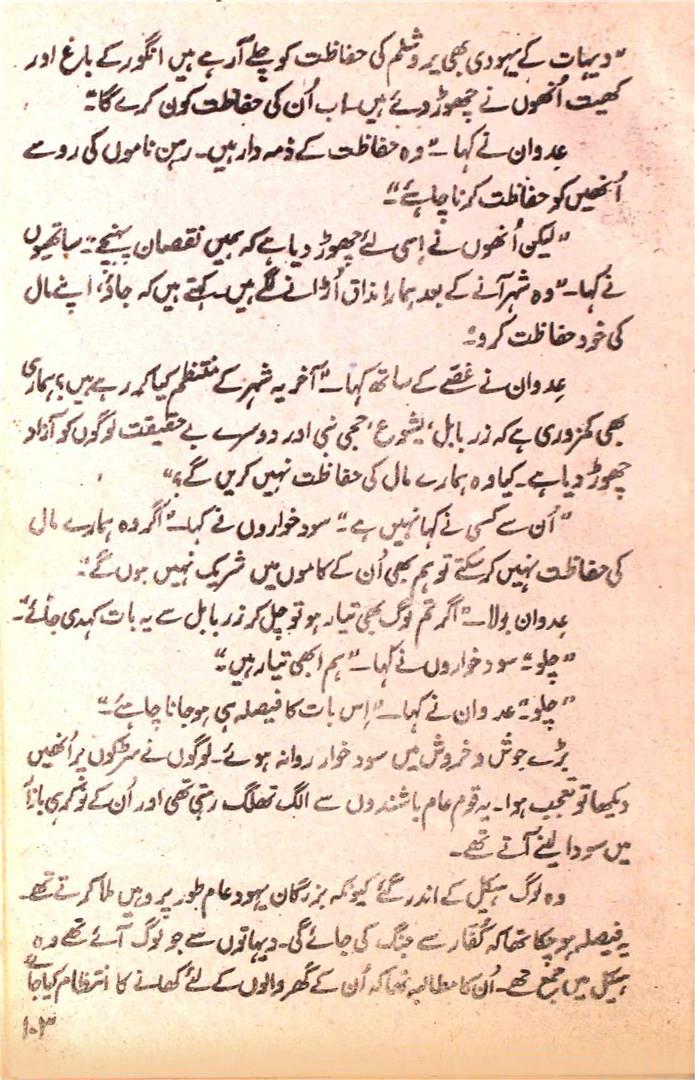 "دیہات کے یہودی بھی یروشلم کی حفاظت کو چلے آرہے ہیں انگور کے باغ اور
کھیت اُنھوں نے چھوڑ دیئے ہیں۔ اب اُن کی حفاظت کون کرے گا"۔
عِدوان نے کہا۔ "وہ حفاظت کے ذمہ دار ہیں۔ رہن ناموں کی رو سے
اُنھیں کو حفاظت کرنا چاہئے"۔
"لیکن اُنھوں نے اِسی لئے چھوڑ دیا ہے کہ ہمیں نقصان پہنچے"۔ ساتھیوں
نے کہا۔ "وہ شہر آنے کے بعد ہمارا مذاق اُڑانے لگے ہیں۔ کہتے ہیں کہ جاؤ، اپنے مال
کی خود حفاظت کرو"۔
عِدوان نے غصّے کے ساتھ کہا۔ "آخر یہ شہر کے منتظم کیا کر رہے ہیں؟ ہماری
بھی کمزوری ہے کہ زر بابل، یشوع، حجی نبی اور دوسرے بے حقیقت لوگوں کو آزاد
چھوڑ دیا ہے۔ کیا وہ ہمارے مال کی حفاظت نہیں کریں گے؟"
"اُن سے کسی نے کہا نہیں ہے"۔ سود خواروں نے کہا۔ "اگر وہ ہمارے مال
کی حفاظت نہیں کر سکتے تو ہم بھی اُن کے کاموں میں شریک نہیں ہوں گے"۔
عِدوان بولا۔ "اگر تم لوگ بھی تیار ہو تو چل کر زر بابل سے یہ بات کہدی جائے"۔
"چلو"۔ سود خواروں نے کہا۔ "ہم ابھی تیار ہیں"۔
"چلو"۔ عدوان نے کہا۔ "اِس بات کا فیصلہ ہی ہو جانا چاہئے"۔
بڑے جوش و خروش میں سود خوار روانہ ہوئے۔ لوگوں نے سڑکوں پر اُنھیں
دیکھا تو تعجب ہوا۔ یہ قوم عام باشندوں سے الگ تھلگ رہتی تھی اور اُن کے نوکر ہی بازار
میں سودا لینے آتے تھے۔
وہ لوگ ہیکل کے اندر گئے کیونکہ بزرگان یہود عام طور پر وہیں ملا کرتے تھے۔
یہ فیصلہ ہو چکا تھا کہ کُفّار سے جنگ کی جائے گی۔ دیہاتوں سے جو لوگ آئے تھے وہ
ہیکل میں جمع تھے۔ اُن کا مطالبہ تھا کہ اُن کے گھر والوں کے لئے کھانے کا انتظام کیا جائے
۱۰۳